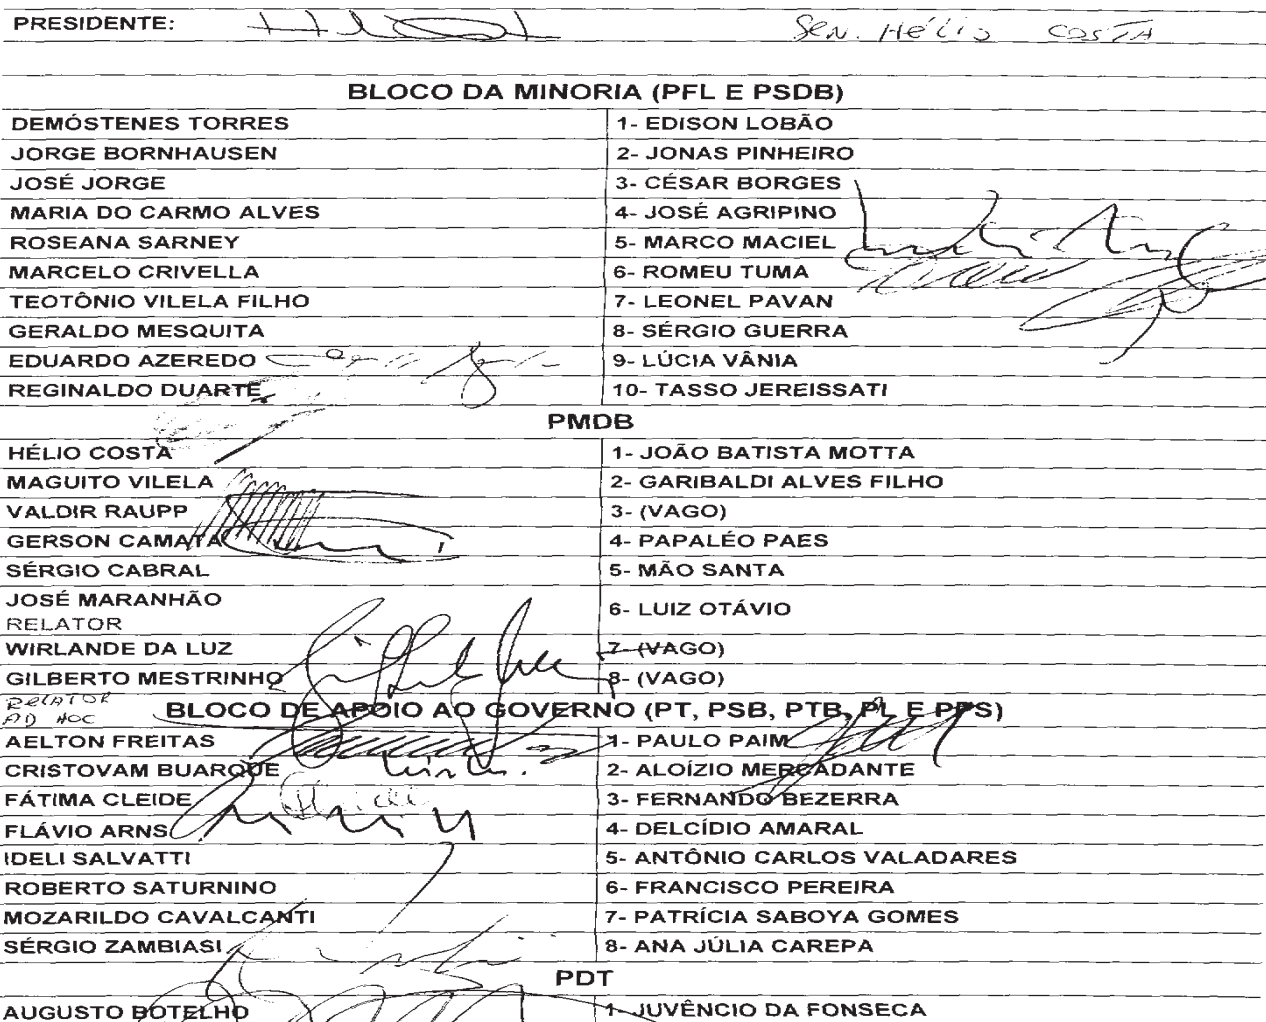 PRESIDENTE: SEN. HÉLIO COSTA
BLOCO DA MINORIA (PFL E PSDB)
DEMÓSTENES TORRES 1- EDISON LOBÃO
JORGE BORNHAUSEN 2- JONAS PINHEIRO
JOSÉ JORGE 3- CÉSAR BORGES
MARIA DO CARMO ALVES 4- JOSÉ AGRIPINO
ROSEANA SARNEY 5- MARCO MACIEL
MARCELO CRIVELLA 6- ROMEU TUMA
TEOTÔNIO VILELA FILHO 7- LEONEL PAVAN
GERALDO MESQUITA 8- SÉRGIO GUERRA
EDUARDO AZEREDO 9- LÚCIA VÂNIA
REGINALDO DUARTE 10- TASSO JEREISSATI
PMDB
HÉLIO COSTA 1- JOÃO BATISTA MOTTA
MAGUITO VILELA 2- GARIBALDI ALVES FILHO
VALDIR RAUPP 3- (VAGO)
GERSON CAMATA 4- PAPALÉO PAES
SÉRGIO CABRAL 5- MÃO SANTA
JOSÉ MARANHÃO 6- LUIZ OTÁVIO
RELATOR
WIRLANDE DA LUZ 7- (VAGO)
GILBERTO MESTRINHO 8- (VAGO)
RELATOR
AD HOC
BLOCO DE APOIO AO GOVERNO (PT, PSB, PTB, PL E PPS)
AELTON FREITAS 1- PAULO PAIM
CRISTOVAM BUARQUE 2- ALOÍZIO MERCADANTE
FÁTIMA CLEIDE 3- FERNANDO BEZERRA
FLÁVIO ARNS 4- DELCÍDIO AMARAL
IDELI SALVATTI 5- ANTÔNIO CARLOS VALADARES
ROBERTO SATURNINO 6- FRANCISCO PEREIRA
MOZARILDO CAVALCANTI 7- PATRÍCIA SABOYA GOMES
SÉRGIO ZAMBIASI 8- ANA JÚLIA CAREPA
PDT
AUGUSTO BOTELHO 1- JUVÊNCIO DA FONSECA